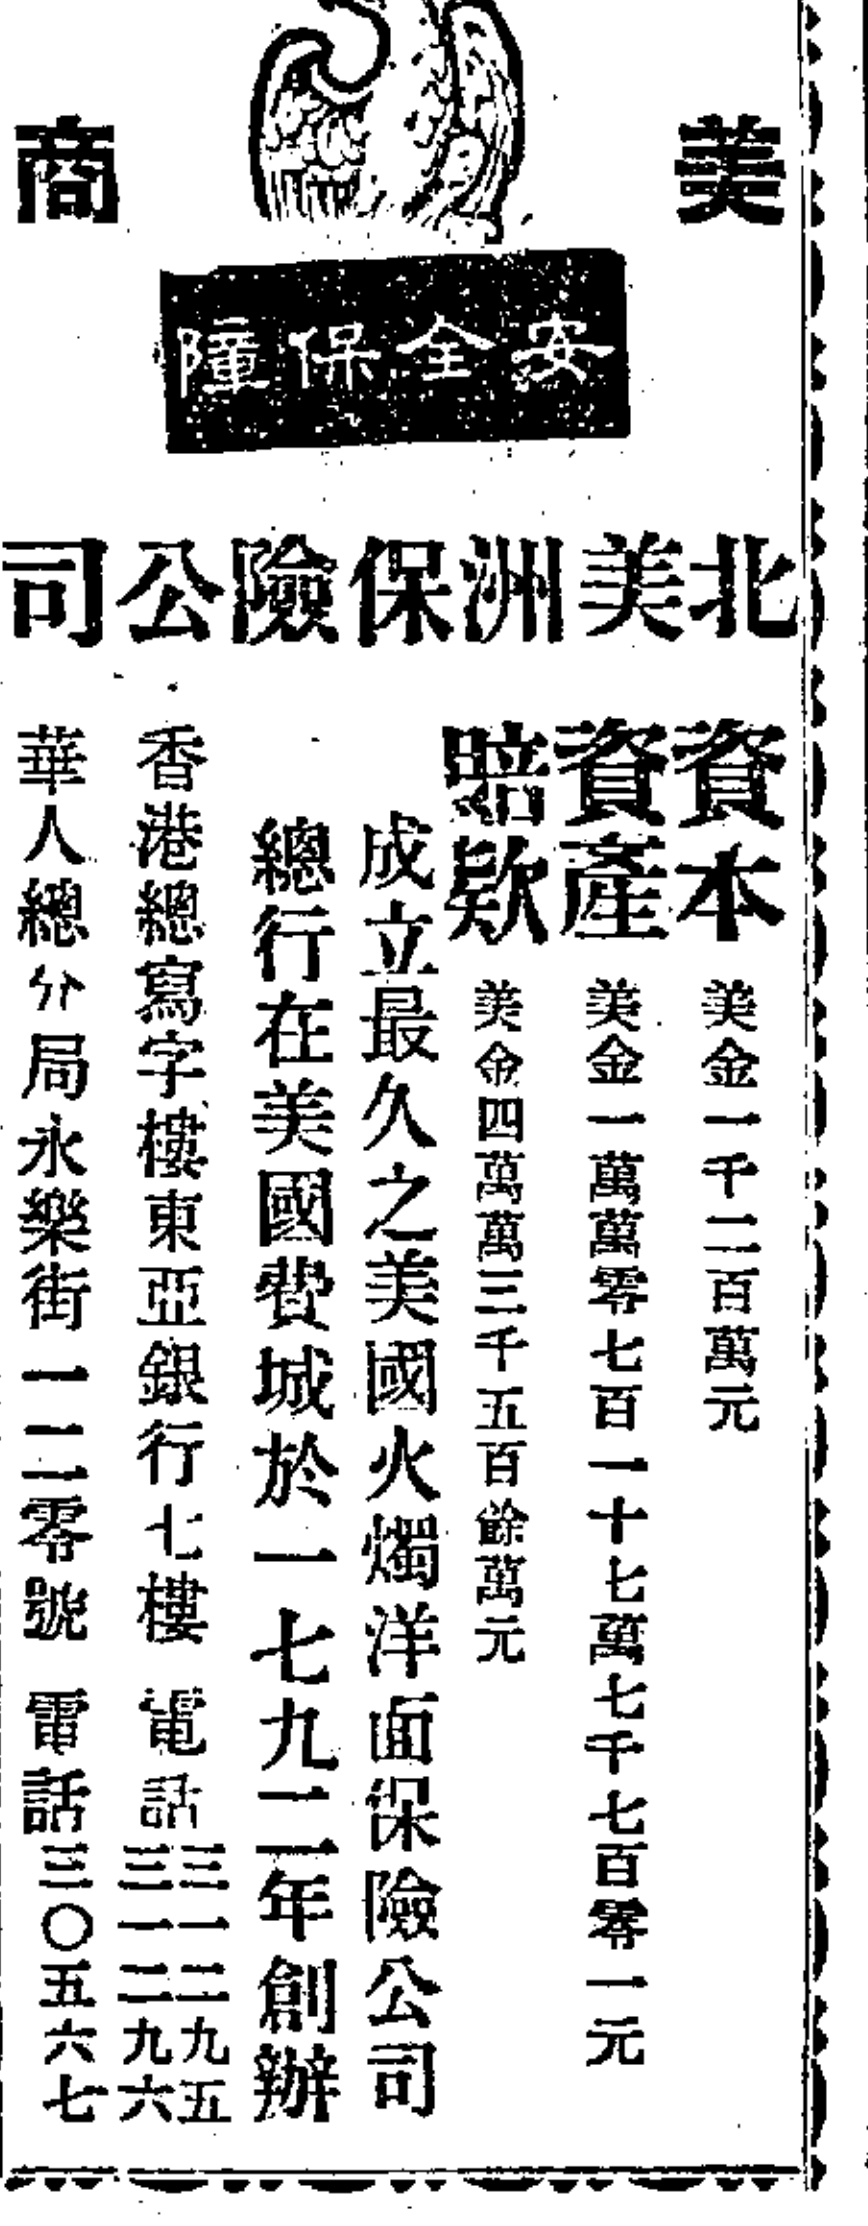 美商
安全保障
北美洲保險公司
資本 美金一千二百萬元
資產 美金一萬萬零七百一十七萬七千七百零一元
賠欵 美金四萬萬三千五百餘萬元
成立最久之美國火燭洋面保險公司
總行在美國費城於一七九二年創辦
香港總寫字樓東亞銀行七樓 電話 三一二九五 三一二九六
華人總分局永樂街一二零號 電話三〇五六七